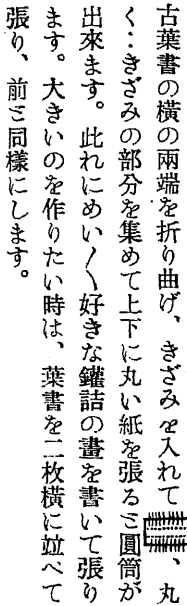 古葉書の橫の兩端を折り曲げ、きざみを入れて、丸
く：きざみの部分を集めて上下に丸い紙を張ると圓筒が
出來ます。此れにめい〱好きな鑵詰の畫を書いて張り
ます。大きいのを作りたい時は、葉書を二枚橫に竝べて
張り、前と同樣にします。